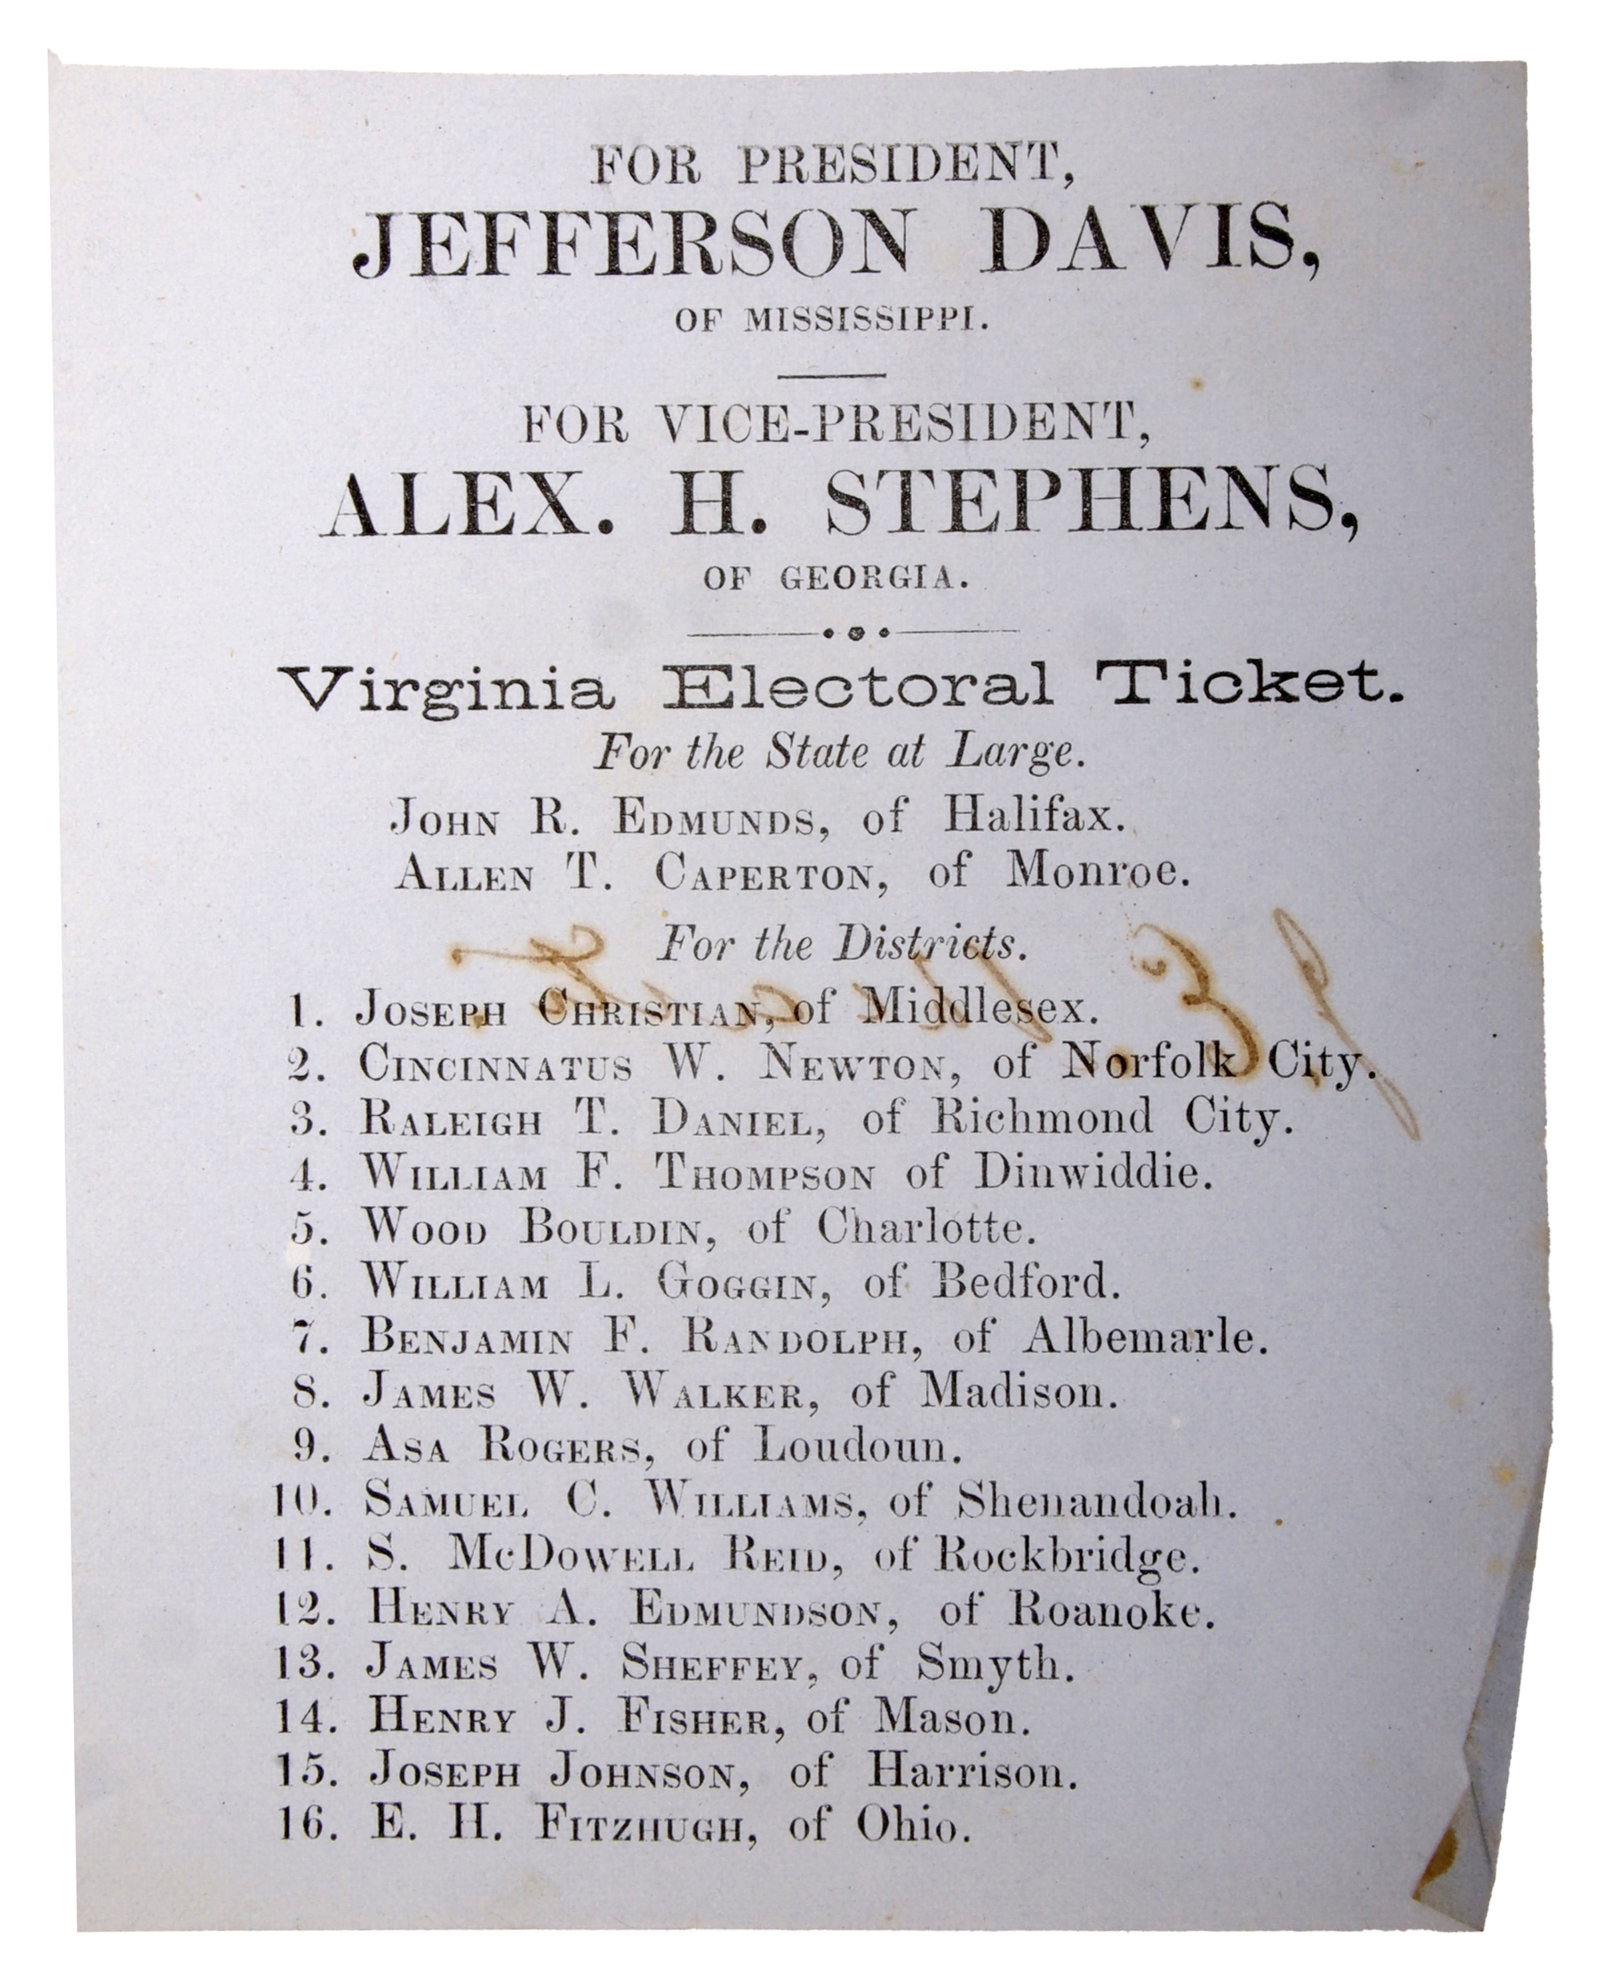 FOR PRESIDENT,
JEFFERSON DAVIS,
OF MISSISSIPPI.
FOR VICE-PRESIDENT,
ALEX. H. STEPHENS,
OF GEORGIA.
Virginia Electoral Ticket.
For the State at Large.
JOHN R. EDMUNDS, of Halifax.
ALLEN T. CAPERTON, of Monroe.
For the Districts.
1. JOSEPH CHRISTIAN, of Middlesex.
2. CINCINNATUS W. NEWTON, of Norfolk City.
3. RALEIGH T. DANIEL, of Richmond City.
4. WILLIAM F. THOMPSON of Dinwiddie.
5. WOOD BOULDIN, of Charlotte.
6. WILLIAM L. GOGGIN, of Bedford.
7. BENJAMIN F. RANDOLPH, of Albemarle.
8. JAMES W. WALKER, of Madison.
9. ASA ROGERS, of Loudoun.
10. SAMUEL C. WILLIAMS, of Shenandoah.
11. S. McDOWELL REID, of Rockbridge.
12. HENRY A. EDMUNDSON, of Roanoke.
13. JAMES W. SHEFFEY, of Smyth.
14. HENRY J. FISHER, of Mason.
15. JOSEPH JOHNSON, of Harrison.
16. E. H. FITZHUGH, of Ohio.